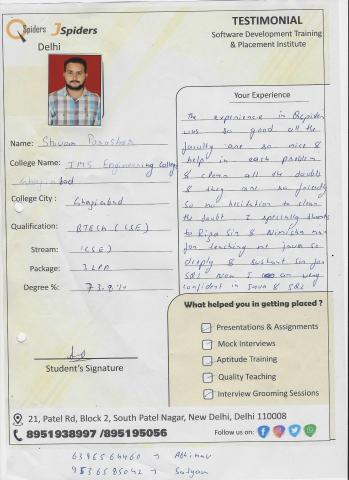 QSpiders JSpiders
Delhi
TESTIMONIAL
Software Development Training
& Placement Institute
Name: Shivam Parashar
College Name: IMS Engineering College
Ghaziabad
College City : Ghaziabad
Qualification: BTECH (CSE)
Stream: (CSE)
Package: 3 LPA
Degree %: 73.9%
Student's Signature
Your Experience
The experience in Qspider
was so good all the
faculty are so nice &
help in each problem
& clean all the doubts
& they are so friendly
so no hesitation to clean
the doubt. I specially thanks
to Sir & Nimisha
for teaching me java so
deeply & Sushant Sir for
SQL Now I am very
confident in Java & SQL
What helped you in getting placed ?
Presentations & Assignments
Mock Interviews
Aptitude Training
Quality Teaching
Interview Grooming Sessions
21, Patel Rd, Block 2, South Patel Nagar, New Delhi, Delhi 110008
8951938997 /895195056
Follow us on:
6395564460 → Abhinav
9536585042 → Satyam